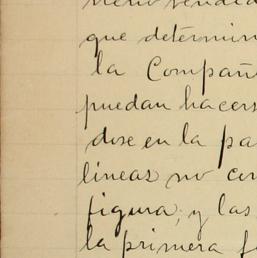 vendid
que determin
la Compañ
puedan hacers
dose en la pa
líneas no con
figura; y las
la primera f